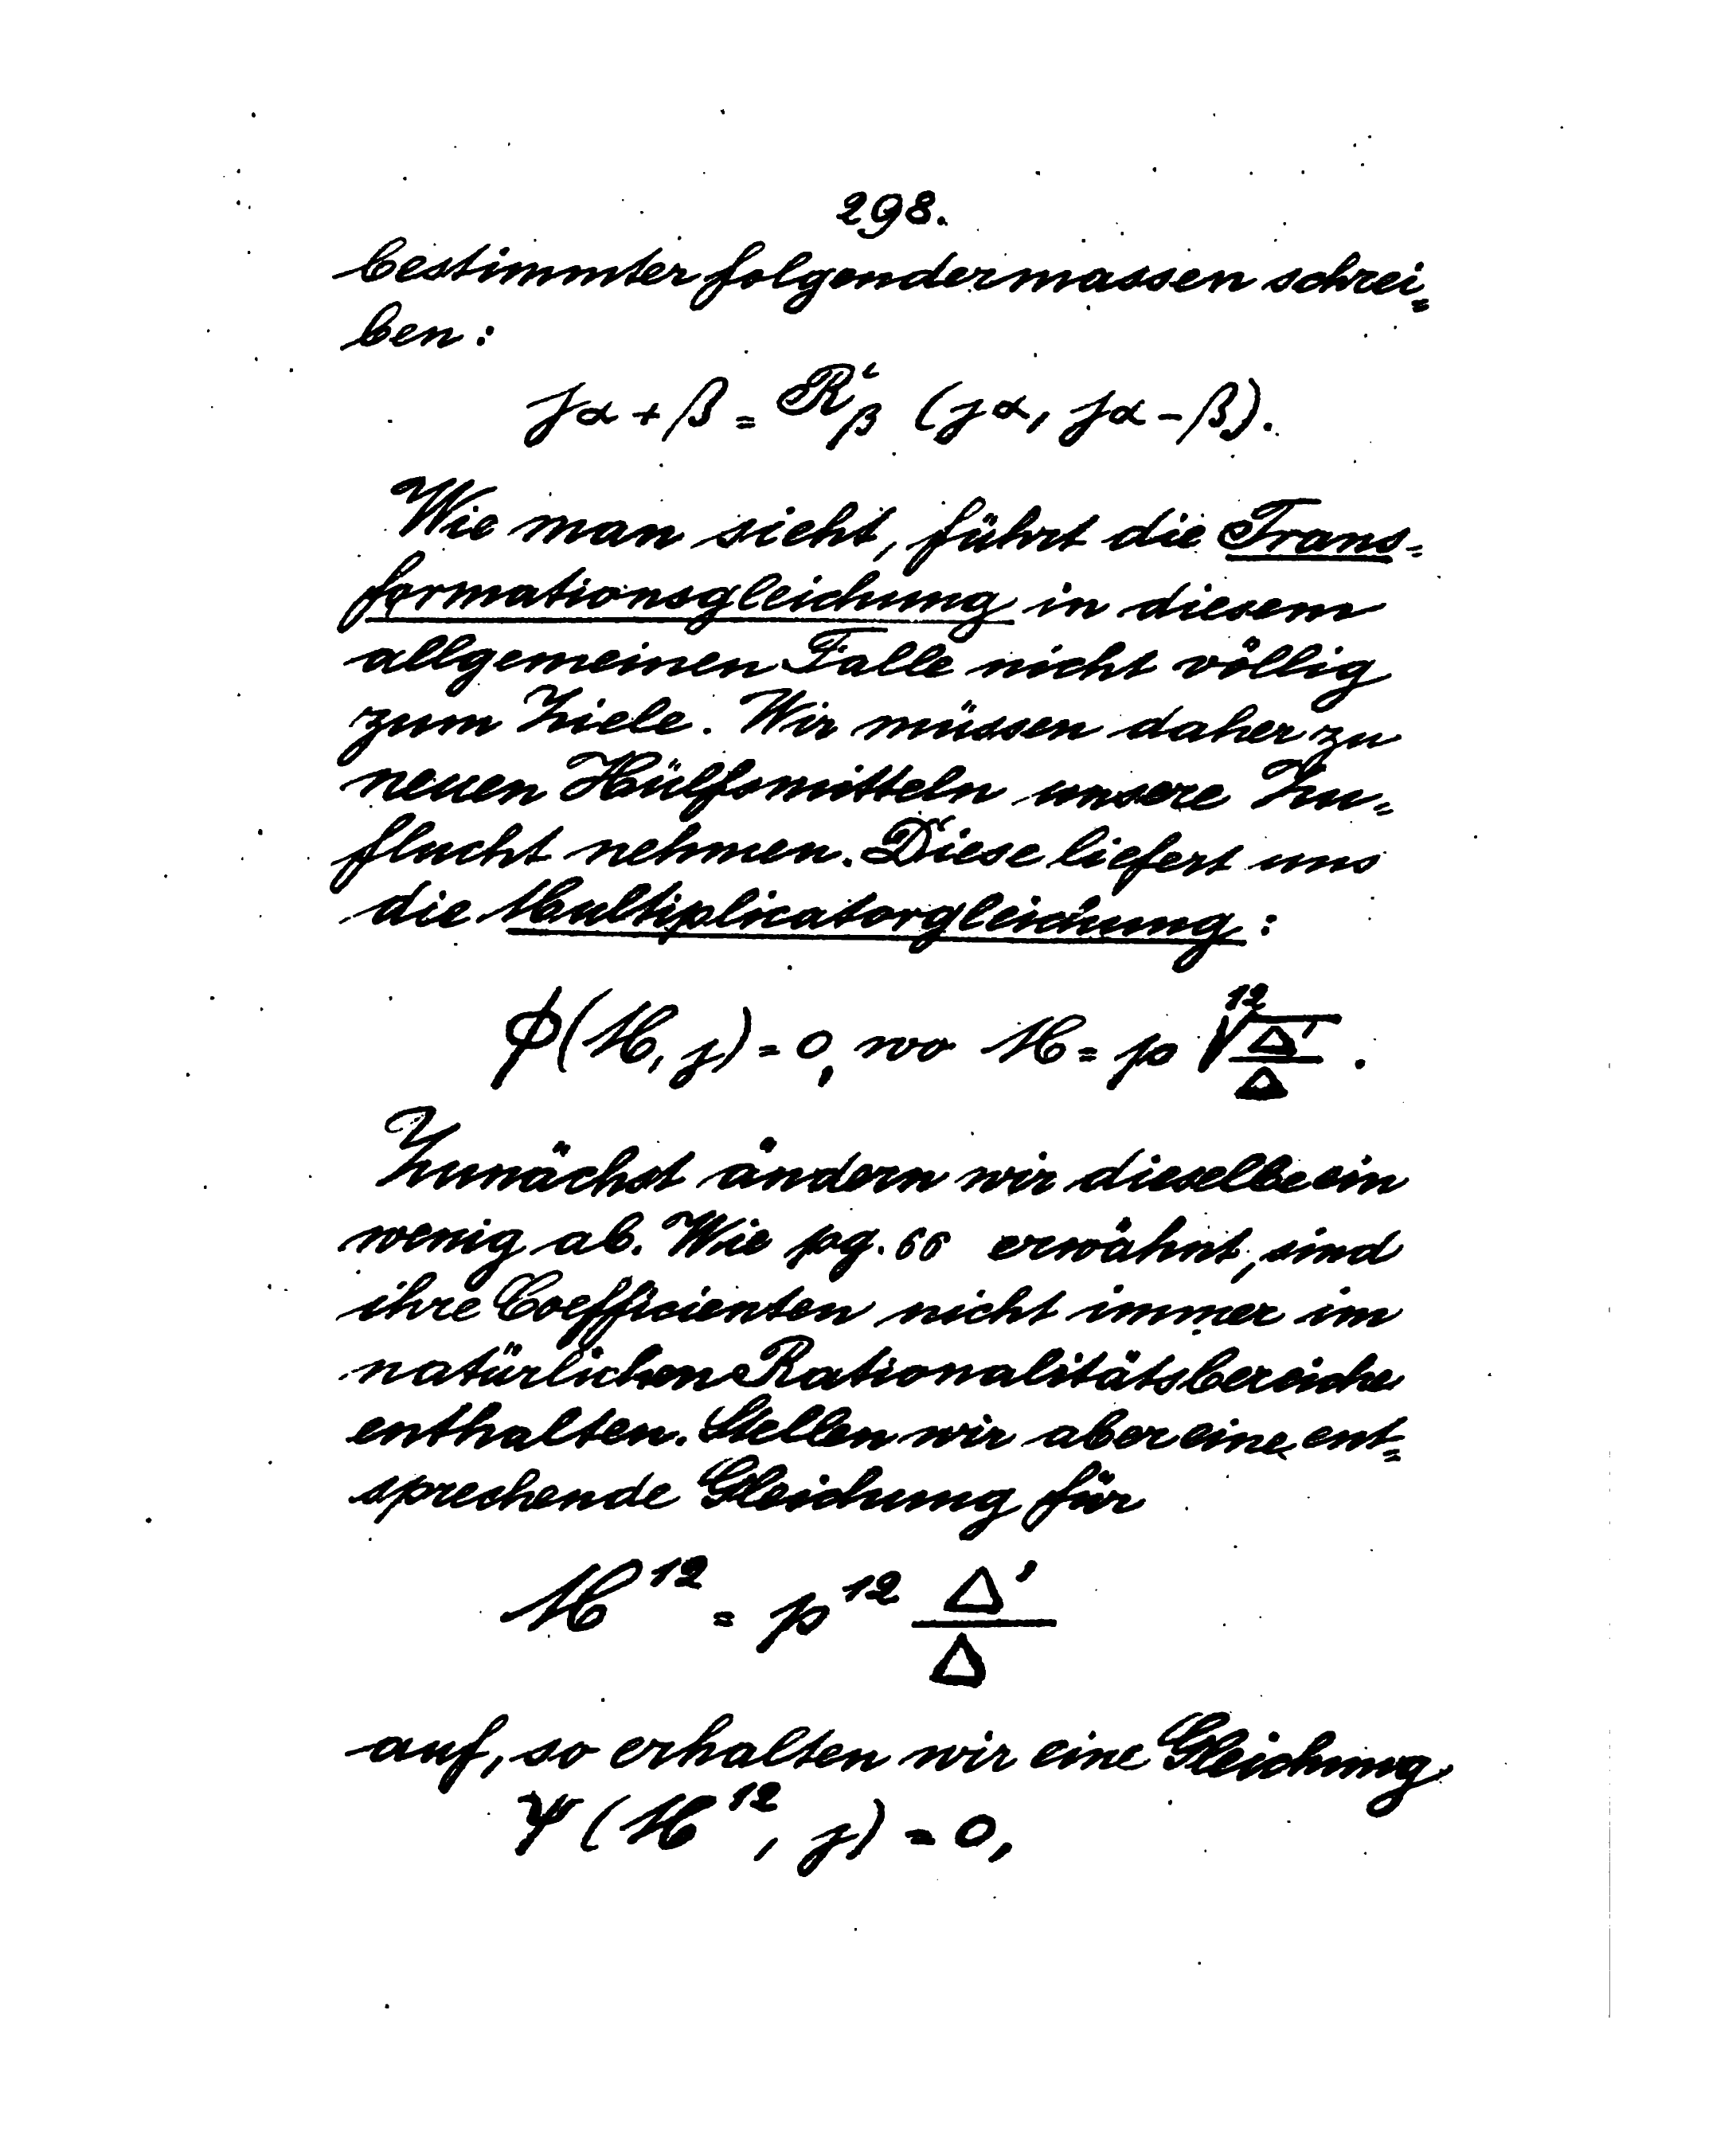 298.
bestimmter folgendermassen schrei=
ben:
jα + β = R'β (jα, jα - β).
Wie man sieht, führt die Trans=
formationsgleichung in diesem
allgemeinen Falle nicht völlig
zum Ziele. Wir müssen daher zu
neuen Hülfsmitteln unsere Zu=
flucht nehmen. Diese liefert uns
die Multiplicatorgleichung:
ϕ(M, j) = 0, wo M = p \sqrt[12]{\frac{Δ'}{Δ}}.
Zunächst ändern wir dieselbe ein
wenig ab. Wie pg. 66 erwähnt, sind
ihre Coefficienten nicht immer im
natürlichen Rationalitätsbereiche
enthalten. Stellen wir aber eine ent=
sprechende Gleichung für
M^{12} = p^{12} \frac{Δ'}{Δ}
auf, so erhalten wir eine Gleichung
Ψ(M^{12}, j) = 0,